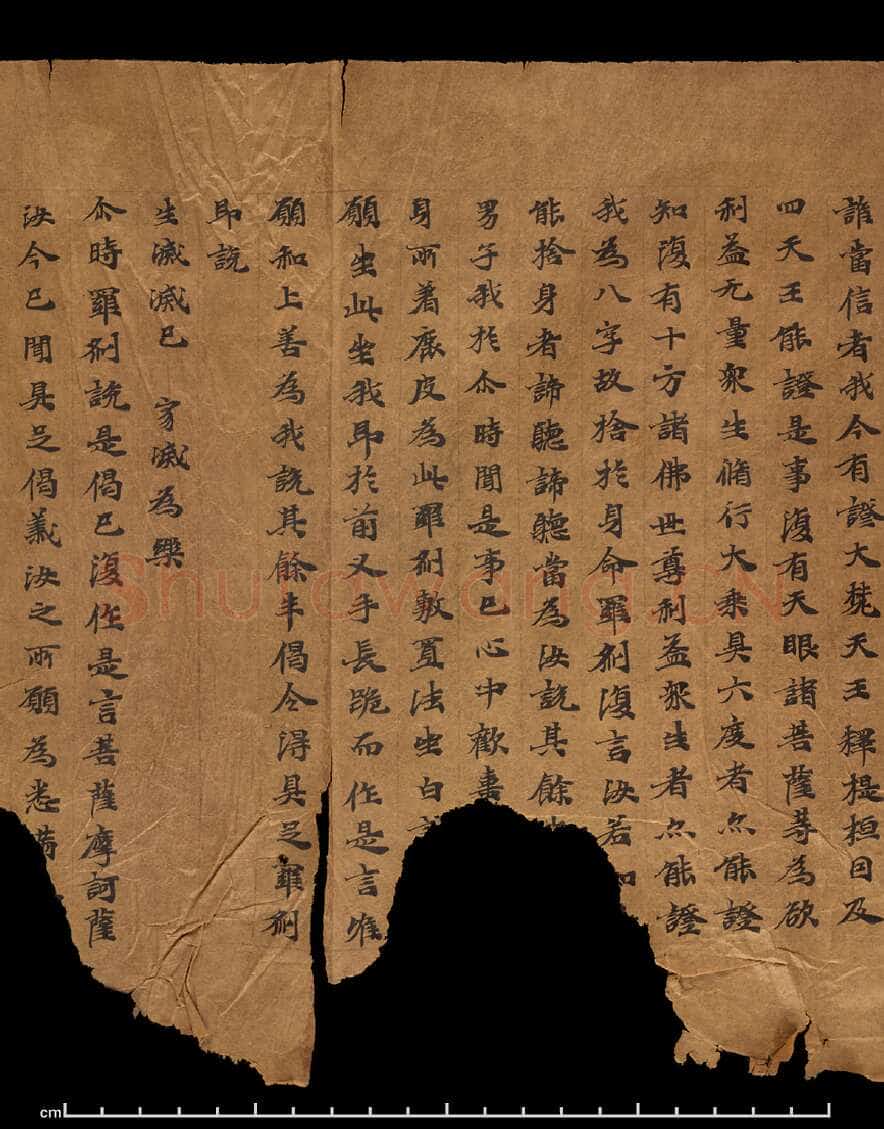 誰當信者我今有證大梵天王釋提桓因及
四天王能證是事復有天眼諸菩薩等為欲
利益无量眾生脩行大乘具六度者亦能證
知復有十方諸佛世尊利益眾生者亦能證
我為八字故捨於身命羅剎復言汝若
能捨身者諦聽諦聽當為汝說其餘
男子我於尒時聞是事已心中歡喜
身所著鹿皮為此羅剎敷置法坐白
願坐此坐我即於前叉手長跪而作是言唯
願和上善為我說其餘半偈令得具足羅剎
即說
生滅滅已 寂滅為樂
尒時羅剎說是偈已復作是言菩薩摩訶薩
汝今已聞具足偈義汝之所願為悉滿
cm
Shufawang.CN